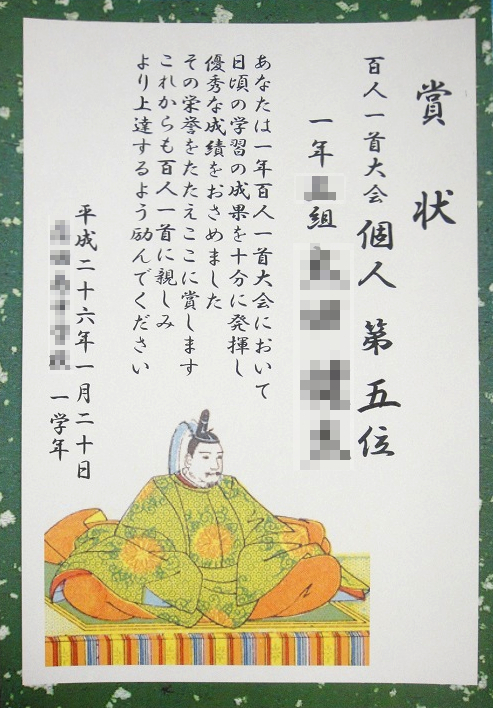 賞状
百人一首大会 個人 第五位
一年 組
あなたは一年百人一首大会において
日頃の学習の成果を十分に発揮し
優秀な成績をおさめました
その栄誉をたたえここに賞します
これからも百人一首に親しみ
より上達するよう励んでください
平成二十六年一月二十日
一学年